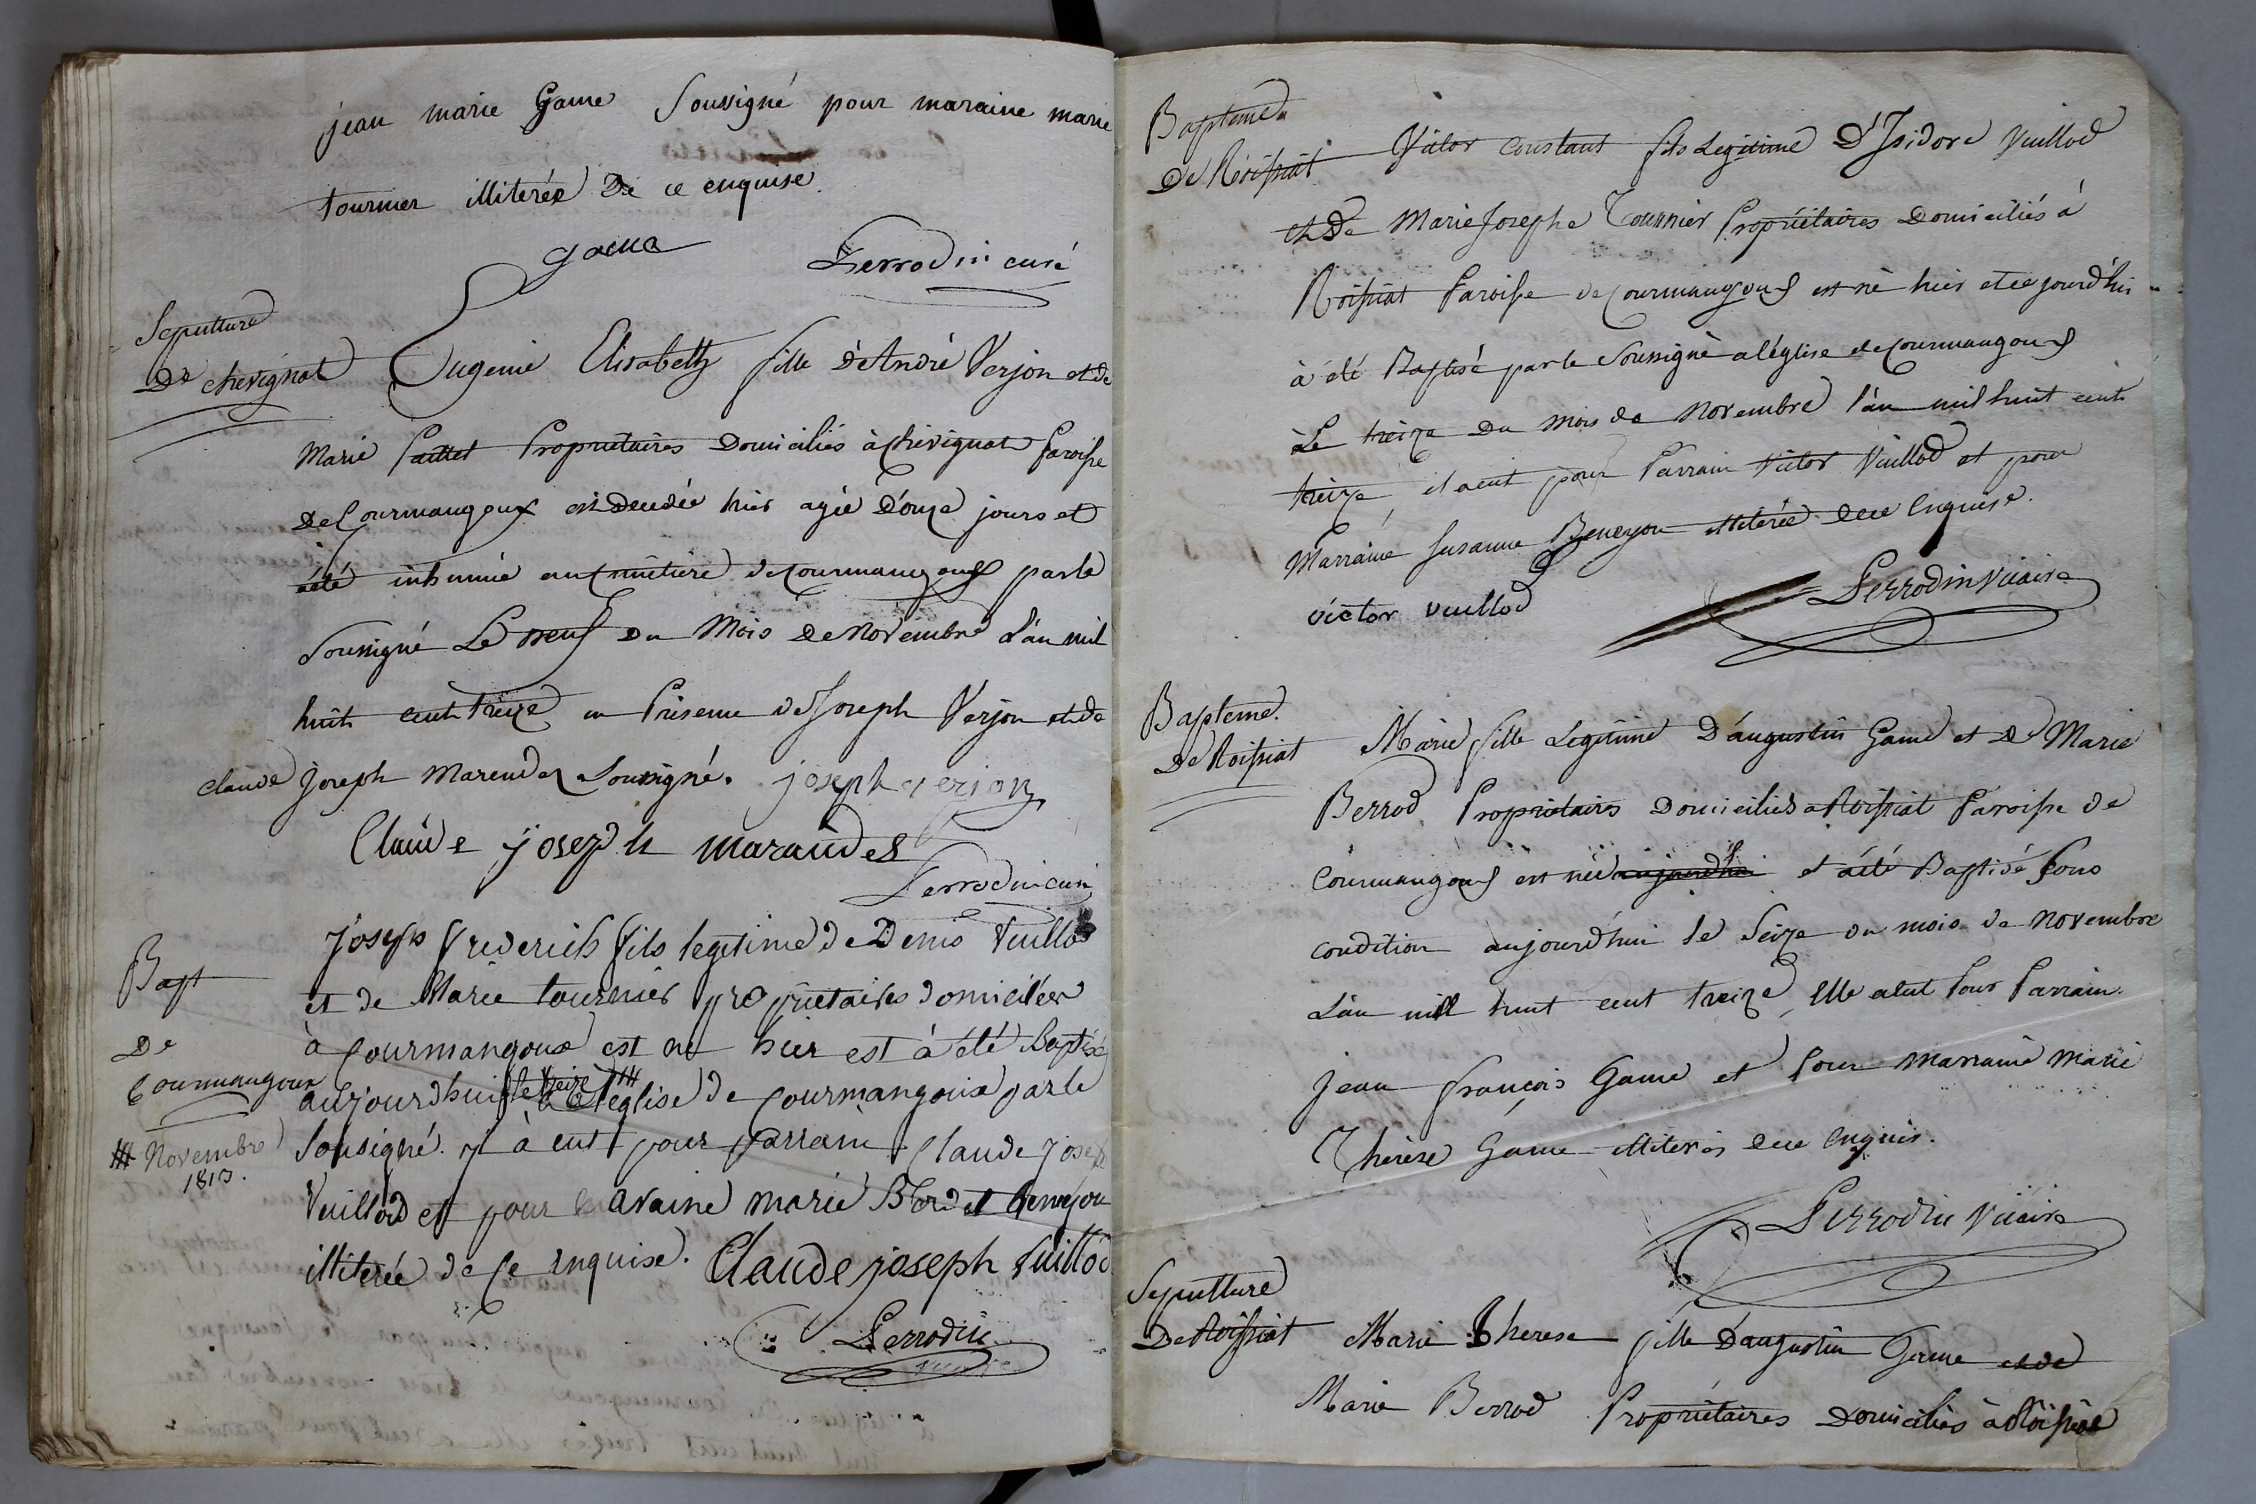 jean marie Game Soussigné pour maraine marie
tournier illiterée De ce enquise.
game
Perrodin curé
Sepulture
De chevignat
Eugenie Elisabeth fille d'André Verjon et de
Marie Paillet Propriétaires Domiciliés à chevignat Paroisse
De Courmangoux est decedée hier agée D'onze jours et
a été inhumée au cimetiere de courmangoux par le
Soussigné Le neuf du Mois De Novembre L'an mil
huit cent treize en Presence de Joseph Verjon et de
claude Joseph Marendes Soussigné. joseph verjon
Claude joseph maraudes
Perrodin curé
Bapt
De
Courmangoux
Novembre
1813.
Joseph frederich fils legitime de Denis Vuillod
et de Marie tournier propriétaires domiciliés
à Courmangoux est né hier est à été Baptisé
aujourdhui le treize à l'église de Courmangoux par le
Sousigné. il à eut pour parrain Claude Joseph
Vuillod et pour maraine marie Bordet beneyon
illiterée de Ce enquise. Claude joseph Vuillod
Perrodin
vicaire
Bapteme
De Roissiat
Victor Constant fils Legitime D'Isidore Vuillod
et De Marie Josephe Tournier Propriétaires Domiciliés à
Roissiat Paroisse de Courmangoux est né hier et ce jourd'hui
à été Baptisé par le Soussigné a l'église de Courmangoux
Le treize Du Mois de Novembre l'an mil huit cent
treize, il a eut pour Parrain Victor Vuillod et pour
Marraine Susanne Beneyon illiterée de ce Enquise.
victor vuillod
Perrodin Vicaire
Bapteme.
De Roissiat
Marie fille Legitime D'augustin Game et De Marie
Berrod Propriétairs Domiciliés a Roissiat Paroisse de
Courmangoux est née aujourd'hui et a été Baptisé sous
condition aujourd'hui le Seize du mois de Novembre
L'an mill huit cent treize, Elle a eut Pour Parrain.
jean françois Game et Pour Marraine Marie
Thérèse Game illiterés de ce Enquis.
Perrodin Vicaire
Sepulture
De Roissiat
Marie Therese fille D'augustin Game et de
Marie Berrod Propriétaires Domiciliés à Roissiat